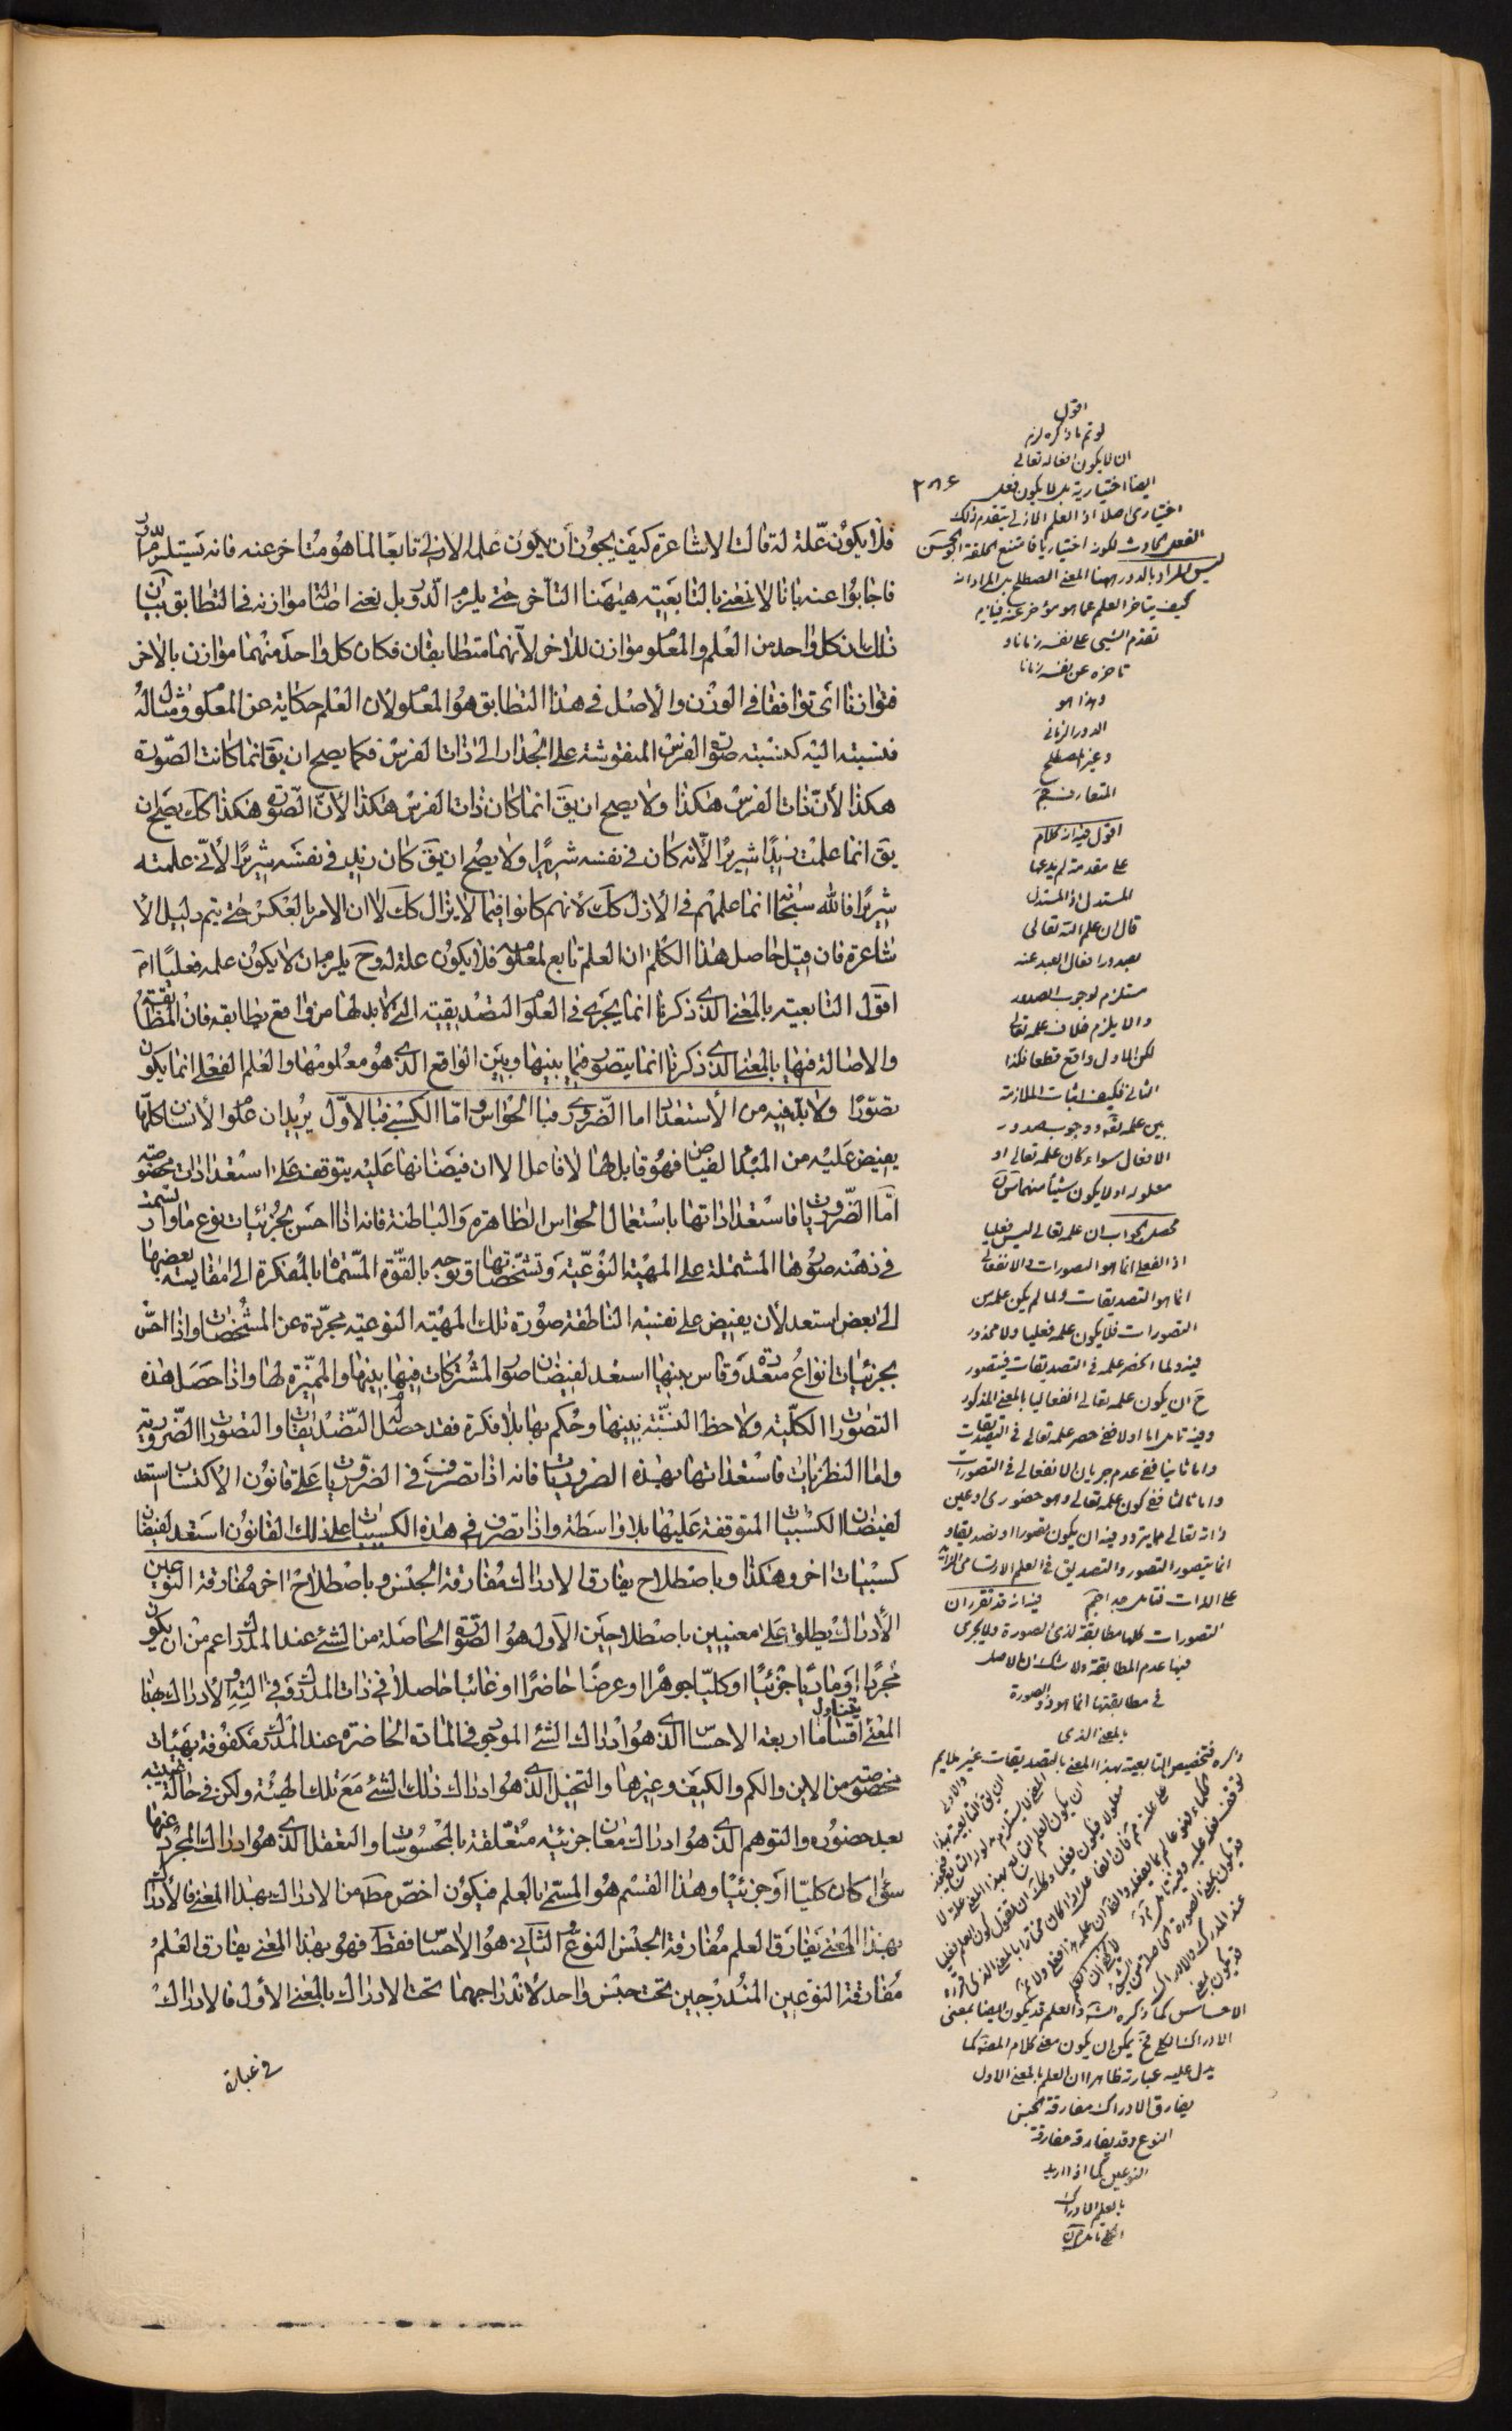 فلا يكون علة له قالت الاشاعرة كيف يجوز أن يكون علمه الازلى تابعا لما هو متأخر عنه فانه يستلزم الدور
فاجابوا عنه بانا لا نعنى بالتابعية هيهنا التأخر حتى يلزم الدور بل نعنى اصالة موازنه فى التطابق بيان
ذلك ان كل واحد من العلم والمعلوم موازن للاخر لأنهما متطابقان فكان كل واحد منهما موازن بالاخر
فتوازنا اى توافقا فى الوزن والأصل فى هذا التطابق هو المعلوم لان العلم حكاية عن المعلوم ومثال له
فنسبته اليه كنسبته صورة الفرس المنقوشة على الجدار الى ذات الفرس فكما يصح ان يق انما كانت الصورة
هكذا لأن ذات الفرس هكذا ولا يصح ان يق انما كان ذات الفرس هكذا لأن الصورة هكذا كك يصح ان
يق انما علمت زيدا شريرا لأنه كان فى نفسه شريرا ولا يصح ان يق كان زيد فى نفسه شريرا لأنى علمته
شريرا فالله سبحانه انما علمهم فى الأزل كك لأنهم كانوا فيما لا يزال كك لا ان الامر بالعكس حتى يتم دليل الأ
شاعرة فان قيل حاصل هذا الكلام ان العلم تابع لمعلومه فلا يكون علة له وح يلزم ان لا يكون علمه فعليا امـ
اقول التابعية بالمعنى الذى ذكرنا انما يجرى فى العلوم التصديقية التى لا بد لها من واقع يطابقه فان المطابقة
والاصالة فيها بالمعنى الذى ذكرنا انما يتصور فيما بينها وبين الواقع الذى هو معلومها والعلم الفعلى انما يكون
تصورا ولا بد فيه من الأستعداد اما الضرورى فبا الحواس واما الكسبى فبا الأول يريد ان علوم الأنسان كلها
يفيض عليه من المبدأ الفياض فهو قابل لها لا فاعل الا ان فيضانها عليه يتوقف على استعدادات مخصوصة
أما الضروريات فاستعداداتها باستعمال الحواس الظاهرة والباطنة فانه اذا احس بجزئيات نوع ما وارتسمت
فى ذهنه صورها المشتملة على المهية النوعية وتشخصاتها وتوجه بالقوة المسماة بالمفكرة الى مقايسة بعضها
الى بعض استعد لأن يفيض على نفسه الناطقة صورة تلك المهية النوعية مجردة عن المشخصات واذا احس
بجزئيات انواع متعددة وقاس بينها استعد لفيضان صور المشتركات فيها بينها والمميزة لها واذا حصل هذه
التصورات الكلية ولاحظ النسبة بينها وحكم بها بلا فكرة فقد حصل له التصديقات والتصورات الضرورية
واما النظريات فاستعداداتها بهذه الضروريات فانه اذا تصرف فى الضروريات على قانون الاكتساب استعد
لفيضان الكسبيات المتوقفة عليها بلا واسطة واذا تصرف فى هذه الكسبيات على ذلك القانون استعد لفيضان
كسبيات اخر وهكذا وباصطلاح يفارق الادراك مفارقة الجنس وباصطلاح اخر مفارقة النوعين
الأدراك يطلق على معنيين باصطلاحين الأول هو الصورة الحاصلة من الشئ عند المدرك اعم من ان يكون
مجردا او ماديا جزئيا او كليا جوهرا او عرضا حاضرا او غائبا حاصلا فى ذات المدرك او فى الته والادراك بهذا
المعنى يتناول اقساما اربعة الاحساس الذى هو ادراك الشئ الموجود فى المادة الحاضرة عند المدرك مكفوفة بهيئات
مخصوصة من الاين والكم والكيف وغيرها والتخيل الذى هو ادراك ذلك الشئ مع تلك الهيئة ولكن فى حالة غيبته
بعد حضوره والتوهم الذى هو ادراك معان جزئية متعلقة بالمحسوسات والتعقل الذى هو ادراك المجرد عنها
سواء كان كليا او جزئيا وهذا القسم هو المسمى بالعلم فيكون اخص مطـ من الادراك بهذا المعنى فالأدراك
بهذا المعنى يفارق العلم مفارقة الجنس النوع الثانى هو الاحساس فقط فهو بهذا المعنى يفارق العلم
مفارقة النوعين المندرجين تحت جنس واحد لأندراجهما تحت الادراك بالمعنى الأول فالادراك
فى عبارة
٢٨٦
اقول
لو تم ما ذكره لزم
ان لا يكون افعاله تعالى
ايضا اختيارية بل لا يكون فعل
اختيارى اصلا اذ العلم الازلى يتقدم ذلك
ليس المراد بالدور ههنا المعنى المصطلح بل المراد انه
كيف يتاخر العلم عما هو مؤخر عنه فيلزم
تقدم الشئ على نفسه زمانا و
تاخره عن نفسه زمانا
وهذا هو
الدور الزمانى
وغير المصطلح
المتعارف
اقول فيه ان الكلام
على مقدمة لم يدعها
المستدل اذ المستدل
قال ان علم الله تعالى
بصدور افعال العبد عنه
مستلزم لوجوب الصدور
والا يلزم خلاف علمه تعالى
لكن الاول واقع قطعا فكذا
الثانى فكيف اثبات الملازمة
بين علمه تعـ ووجوب صدور
الافعال سواء كان علمه تعالى او
معلوله او لا يكون شيئا منهما
محصل الجواب ان علمه تعالى ليس فعليا
اذ الفعلى انما هو التصورات والانفعالى
انما هو التصديقات ولما لم يكن علمه من
التصورات فلا يكون علمه فعليا ولا محذور
فيه ولما انحصر علمه فى التصديقات فيتصور
ح ان يكون علمه تعالى انفعاليا بالمعنى المذكور
وفيه تامل اما اولا ففى حصر علمه تعالى فى التصديقات
واما ثانيا ففى عدم جريان الانفعالى فى التصورات
واما ثالثا ففى كون علمه تعالى وهو حضورى او عين
ذاته تعالى مما يتردد فيه ان يكون تصورا او تصديقا و
انما يتصور التصور والتصديق فى العلم الارتسامى الزائد
على الذات فتامل جدا فيه انه قد تقرر ان
التصورات كلها مطابقة لذى الصورة ولا يجرى
فيها عدم المطابقة ولا شك ان الاصل
فى مطابقتها انما هو ذو الصورة
بالمعنى الذى
ذكره فتخصيص التابعية بهذا المعنى بالتصديقات غير ملايم
الاحساس كما ذكره الشـ والعلم قد يكون ايضا بمعنى
الادراك الكلى فح يمكن ان يكون معنى كلام المصنف كما
يدل عليه عبارته ظاهرا ان العلم بالمعنى الاول
يفارق الادراك مفارقة الجنس
النوع وقد يفارقه مفارقة
النوعين كما اذا اريد
بالعلم الادراك
الكلى